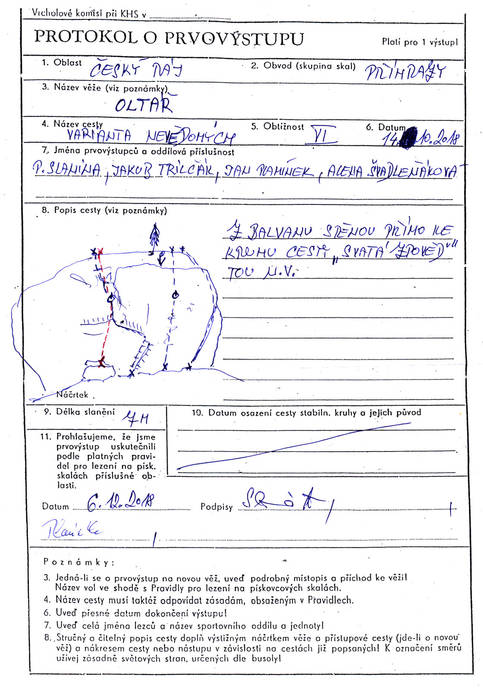 Vrcholové komisi při KHS v
PROTOKOL O PRVOVÝSTUPU Platí pro 1 výstup!
1. Oblast ČESKÝ RÁJ 2. Obvod (skupina skal) PŘÍHRAZY
3. Název věže (viz poznámky) OLTÁŘ
4. Název cesty VARIANTA NEVĚDOMÝCH 5. Obtížnost VI 6. Datum 14. 10. 2018
7. Jména prvovýstupců a oddílová příslušnost
P. SLANINA, JAKUB TRLÍČÁK, JAN PLANÍNEK, ALENA ŠVADLEŇÁKOVÁ
8. Popis cesty (viz poznámky)
Z BALVANU STĚNOU PŘÍMO KE
KRUHU CESTY „SVATÁ ZPOVĚĎ“
TOU N.V.
Náčrtek
9. Délka slanění 7M
10. Datum osazení cesty stabiln. kruhy a jejich původ
11. Prohlašujeme, že jsme
prvovýstup uskutečnili
podle platných pravi-
del pro lezení na písk.
skalách příslušné ob-
lasti.
Datum 6.12.2018 Podpisy
Poznámky:
3. Jedná-li se o prvovýstup na novou věž, uveď podrobný místopis a příchod ke věži!
Název vol ve shodě s Pravidly pro lezení na pískovcových skalách.
4. Název cesty musí taktéž odpovídat zásadám, obsaženým v Pravidlech.
6. Uveď přesné datum dokončení výstupu!
7. Uveď celá jména lezců a název sportovního oddílu a jednoty!
8. Stručný a čitelný popis cesty doplň výstižným náčrtkem věže a přístupové cesty (jde-li o novou
věž) a nákresem cesty nebo nástupu v závislosti na cestách již popsaných! K označení směrů
užívej zásadně světových stran, určených dle busoly!